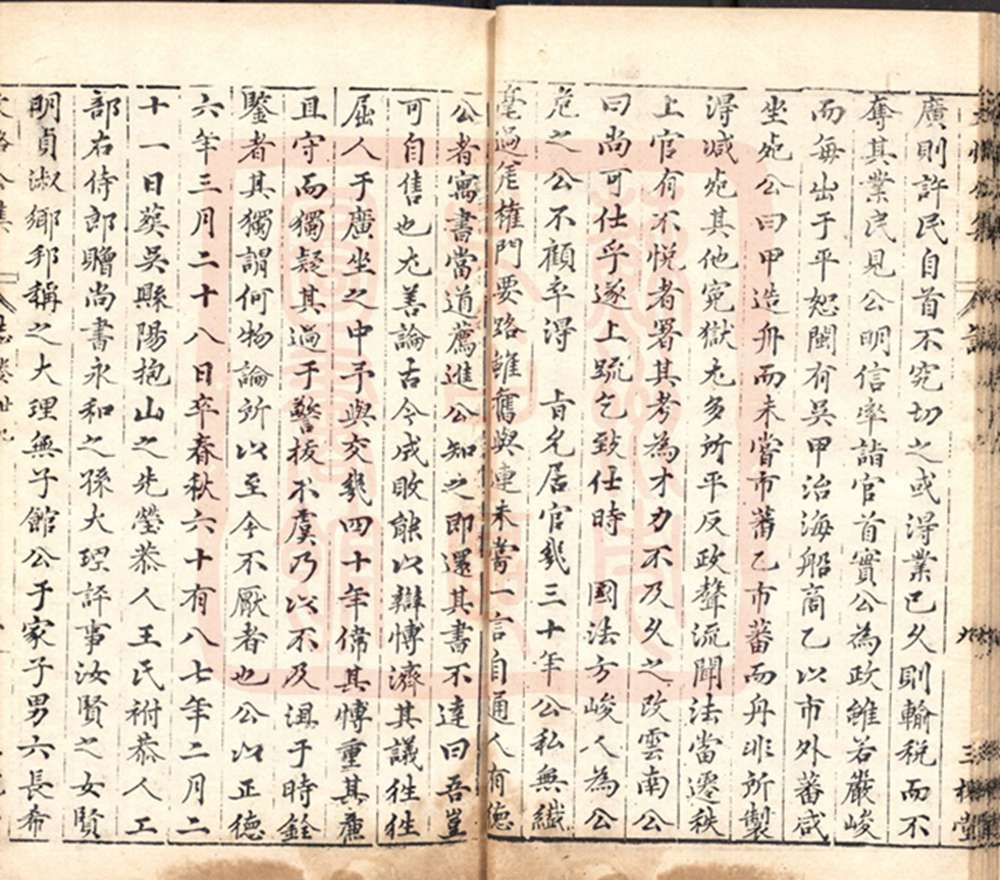 廣則許民自首不究切之或得業已久則輸税而不
奪其業民見公明信率詣官首實公為政雖若嚴峻
而每出于平恕閩有吳甲治海船商乙以市外蕃咸
坐死公曰甲造舟而未嘗市蕃乙市蕃而舟非所製
得減死其他冤獄尤多所平反政聲流聞法當遷秩
上官有不悦者署其考為才力不及久之改雲南公
曰尚可仕乎遂上疏乞致仕時 國法方峻人為公
危之公不顧卒得 㫖允居官㡬三十年公私無纖
毫過差權門要路雖舊與連未嘗一言自通人有德
公者寓書當道薦進公知之即還其書不達曰吾豈
可自售也尤善論古今成敗能以辯愽濟其議徃徃
屈人于廣坐之中予與交㡬四十年偉其愽重其亷
且守而獨疑其過于警拔不虞乃以不及 溷于時銓
鑒者其獨謂何物論所以至今不厭者也公以正德
六年三月二十八日卒春秋六十有八七年二月二
十一日葬吳縣陽抱山之先塋恭人王氏祔恭人工
部右侍郎贈尚書永和之孫大理評事汝賢之女賢
明貞淑鄉邦稱之大理無子館公于家子男六長希